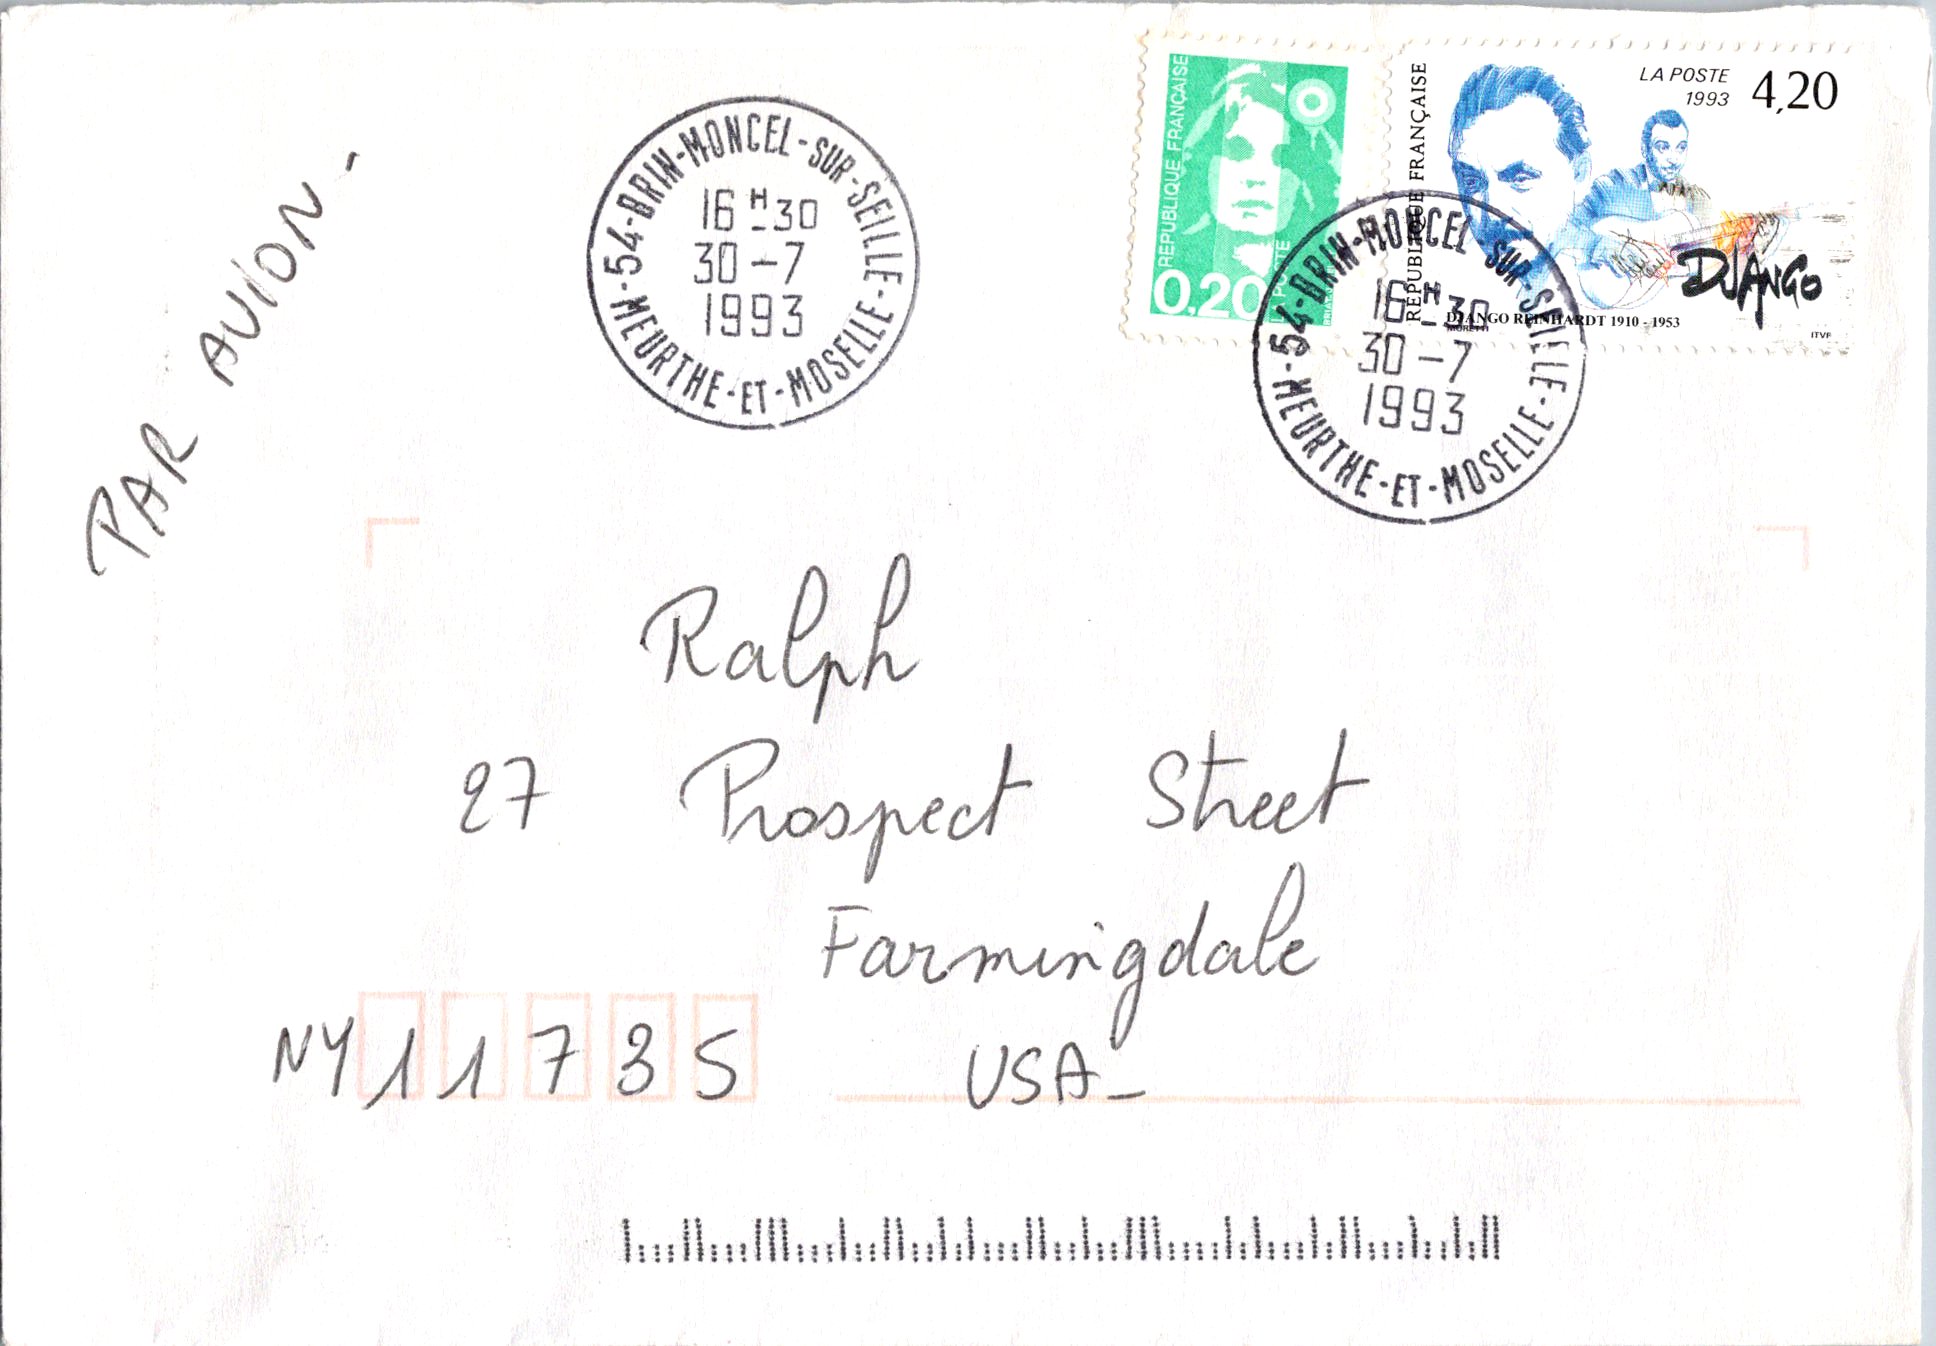 PAR AVION -
54-BRIN-MONCEL-SUR-SEILLE-
M-MEURTHE-ET-MOSELLE-
16 H 30
30-7
1993
REPUBLIQUE FRANÇAISE
0,20
LA POSTE
REPUBLIQUE FRANÇAISE
LA POSTE
1993
4,20
DJANGO
DJANGO REINHARDT 1910 - 1953
MORETTI
ITVF
54-BRIN-MONCEL-SUR-SEILLE-
M-MEURTHE-ET-MOSELLE-
16 H 30
30-7
1993
Ralph
27 Prospect Street
Farmingdale
NY 11735 USA_